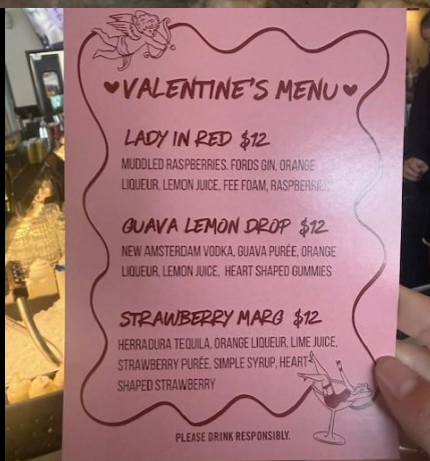 VALENTINE'S MENU
LADY IN RED $12
MUDDLED RASPBERRIES. FORDS GIN, ORANGE
LIQUEUR, LEMON JUICE, FEE FOAM,
GUAVA LEMON DROP $12
NEW AMSTERDAM VODKA, GUAVA PURÉE, ORANGE
LIQUEUR, LEMON JUICE, HEART SHAPED GUMMIES
STRAWBERRY MARG $12
HERRADURA TEQUILA, ORANGE LIQUEUR, LIME JUICE,
STRAWBERRY PURÉE, SIMPLE SYRUP, HEART
SHAPED STRAWBERRY
PLEASE DRINK RESPONSIBLY.